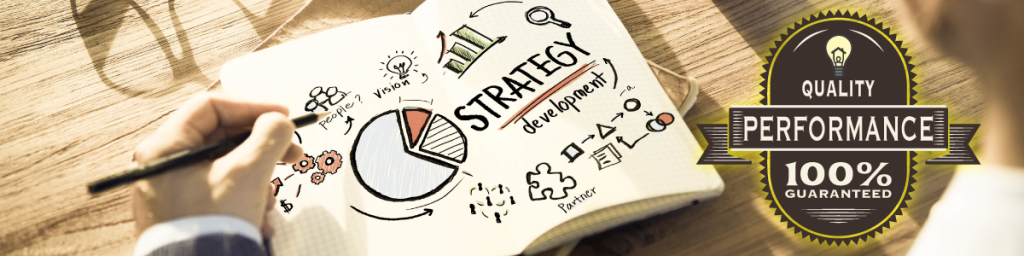 people?
Vision
STRATEGY
development
$
Partner
QUALITY
PERFORMANCE
100%
GUARANTEED